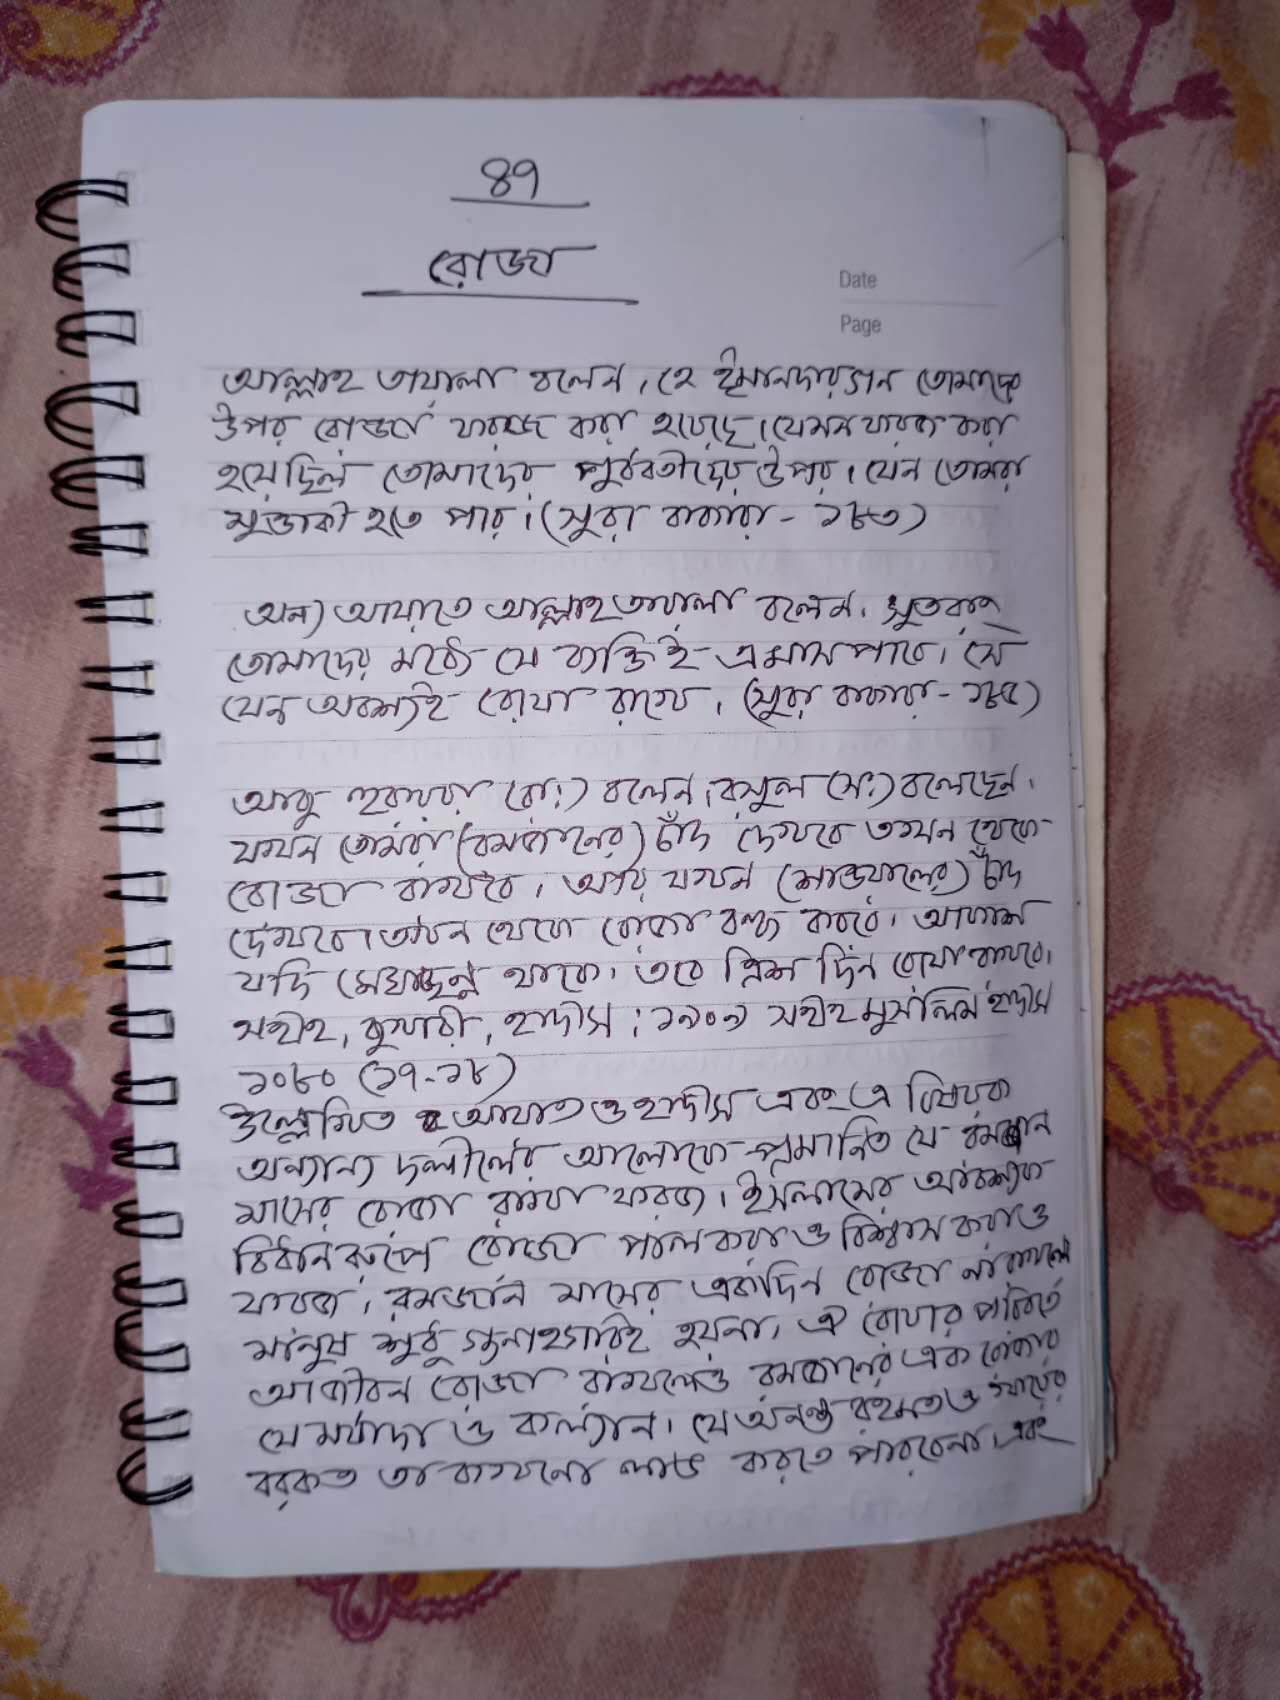 ৪৭
রোজা
Date
Page
আল্লাহ তায়ালা বলেন, হে ইমানদারগন তোমাদের
উপর রোজা ফরজ করা হয়েছে। যেমন ফরজ করা
হয়েছিল তোমাদের পূর্ববর্তীদের উপর। যেন তোমরা
মুত্তাকী হতে পার। (সুরা বাকারা - ১৮৩)
অন্য আয়াতে আল্লাহ তায়ালা বলেন, সুতরাং
তোমাদের মধ্যে যে ব্যক্তিই এ মাস পাবে। সে
যেন অবশ্যই রোযা রাখে। (সুরা বাকারা - ১৮৫)
আবু হুরায়রা (রা:) বলেন, রসুল (স:) বলেছেন,
যখন তোমরা (রমজানের) চাঁদ দেখবে তখন থেকে
রোজা রাখবে। আর যখন (শাওয়ালের) চাঁদ
দেখবে। তখন থেকে রোজা বন্ধ করবে। আকাশ
যদি মেঘাচ্ছন্ন থাকে। তবে ত্রিশ দিন রোযা রাখবে।
সহীহ, বুখারী, হাদীস : ১৯০৯ সহীহ মুসলিম হাদীস
১০৮০ (১৭-১৮)
উল্লেখিত আয়াত ও হাদীস এবং এ বিষয়ক
অন্যান্য দলীলের আলোকে প্রমানিত যে রমজান
মাসের রোজা রাখা ফরজ। ইসলামের আবশ্যক
বিধান রুপে রোজা পালন করা ও বিশ্বাস করাও
ফরজ। রমজান মাসের একদিন রোজা না রাখলে
মানুষ শুধু গুনাহগারই হয়না, ঐ রোযার পরিবর্তে
আজীবন রোজা রাখলেও রমজানের এক রোজার
যে মর্যাদা ও কল্যান। যে অনন্ত রহমত ও খায়ের
বরকত তা কখনো লাভ করতে পারবেনা এবং